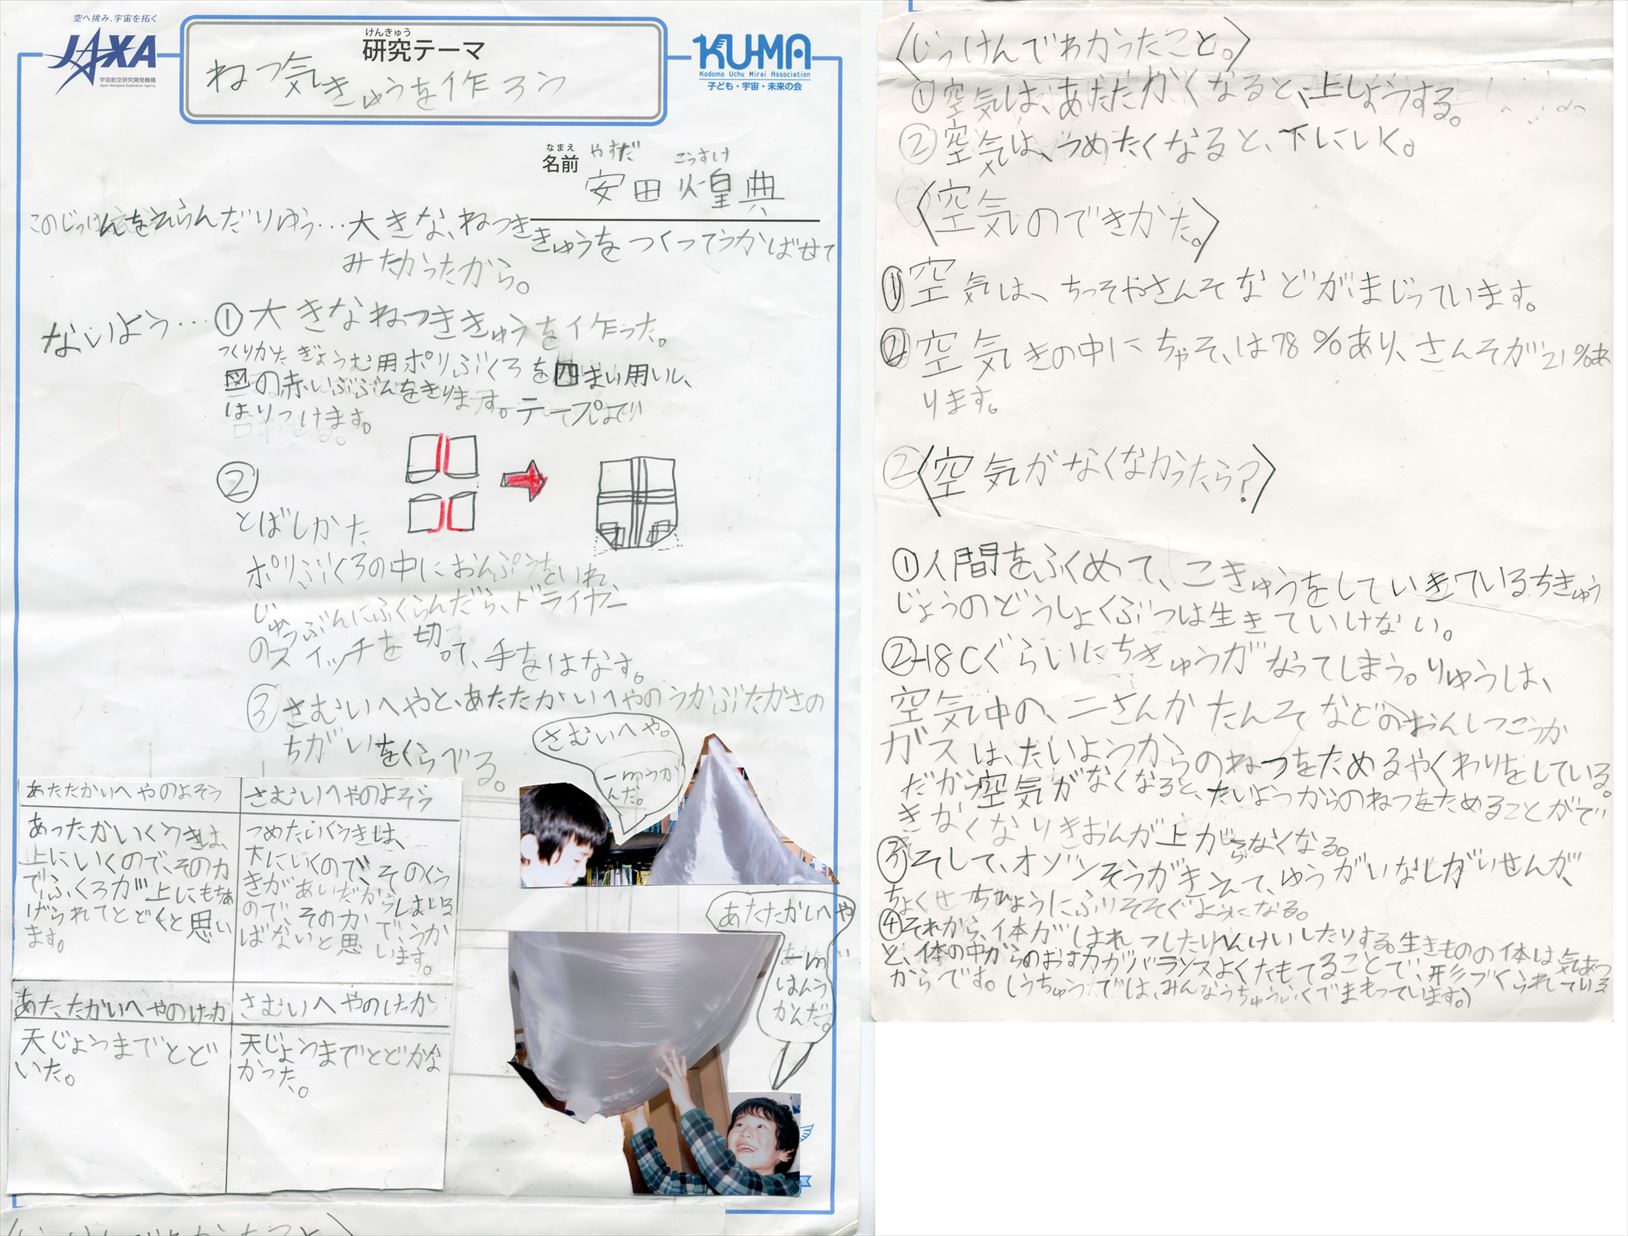 空へ挑み、宇宙を拓く
JAXA
宇宙航空研究開発機構
Japan Aerospace Exploration Agency
けんきゅう
研究テーマ
ねつ気きゅうを作ろう
KU-MA
Kodomo Uchu Mirai Association
子ども・宇宙・未来の会
なまえ やすだ こうすけ
名前 安田煌典
このじっけんをえらんだりゆう…大きな、ねつききゅうをつくってうかばせて
みたかったから。
ないよう…①大きなねつききゅうを作った。
つくりかた ぎょうむ用ポリぶくろを四まい用いし、
図の赤いぶぶんをきります。テープで
はりつけます。
②
とばしかた
ポリぶくろの中におんぷうをいれ、
じゅうぶんにふくらんだら、ドライヤー
のスイッチを切って、手をはなす。
③さむいへやと、あたたかいへやのうかぶたかさの
ちがいをくらべる。
さむいへや。
んだ。
あたたかいへやのよそう
あったかいくうきは、
上にいくので、その力
でふくろが上にもちあ
げられてとどくと思い
ます。
さむいへやのよそう
つめたいくうきは、
下にいくので、そのくう
きがあいだからしはいる
ので、その力でうか
ばないと思います。
あたたかいへや
はんう
かんだ。
あたたかいへやのけっか
天じょうまでとど
いた。
さむいへやのけっか
天じょうまでとどかな
かった。
〈じっけんでわかったこと。〉
①空気は、あたたかくなると、上しょうする。
②空気は、つめたくなると、下にいく。
〈空気のできかた。〉
①空気は、ちっそやさんそなどがまじっています。
②空気きの中にちゃそ、は78%あり、さんそが21%あ
ります。
②〈空気がなくなかったら?〉
①人間をふくめて、こきゅうをしていきているちきゅう
じょうのどうしょくぶつは生きていけない。
②-18Cぐらいにちきゅうがなってしまう。りゆうは、
空気中の、二さんかたんそなどのおんしつこうか
ガスは、たいようからのねつをためるやくわりをしている。
だから空気がなくなると、たいようからのねつをためることがで
きなくなりきおんが上がらなくなる。
③そして、オゾンそうがきえて、ゆうがいなしがいせんが、
ちょくせちびょうにふりそそぐようになる。
④それから、体がはれつしたりへんけいしたりする。生きものの体は、気あつ
と、体の中からのおす力がバランスよくたもてることで、形づくられている
からです。(うちゅうでは、みんなうちゅうふくでまもっています。)